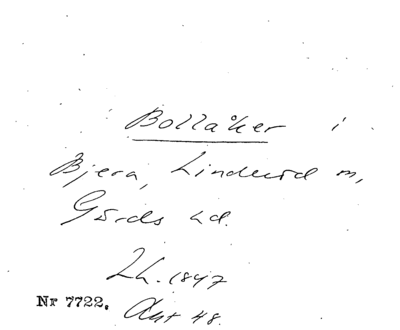 Bollåker i
Bjera, Linderöd m,
Gärds hd.
Lh. 1847
Nr 7722. Akt 48.